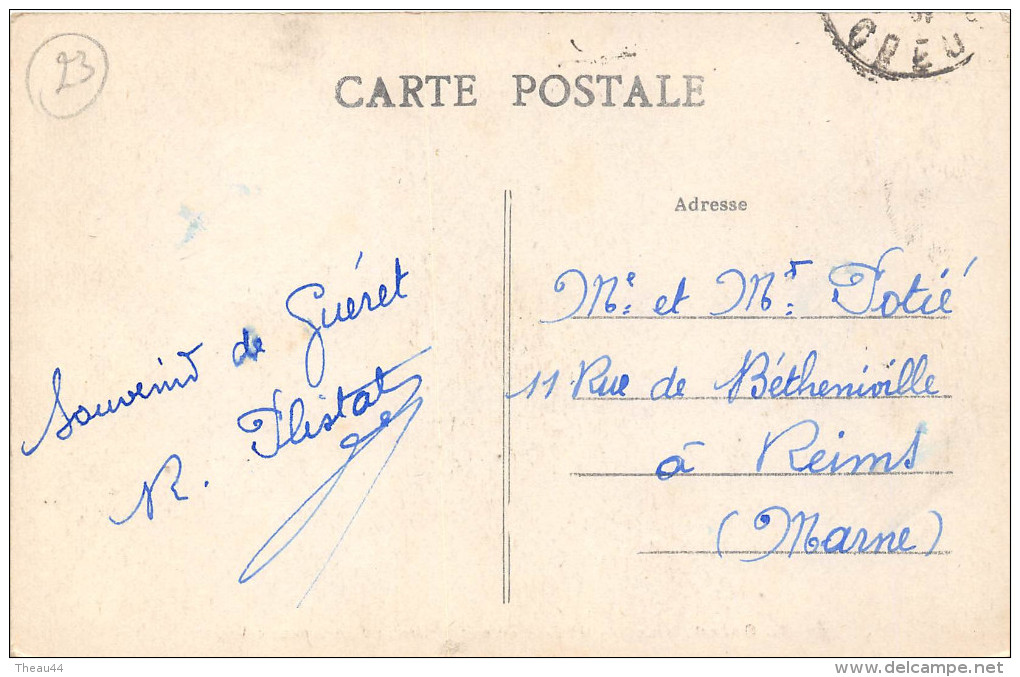 23
CREU
CARTE POSTALE
Adresse
Souvenir de Guéret
R. Plistat
Me et Mr Potié
11 Rue de Bétheniville
à Reims
(Marne)
Theau44
www.delcampe.net